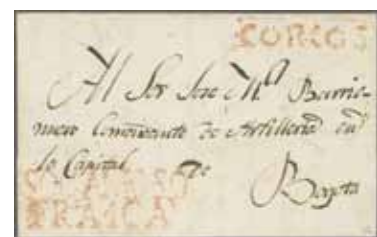 Al Sor Jose M.ª Barrio-
nuevo Comandante de Artilleria en
la Capital de
Bogota
FRANCA